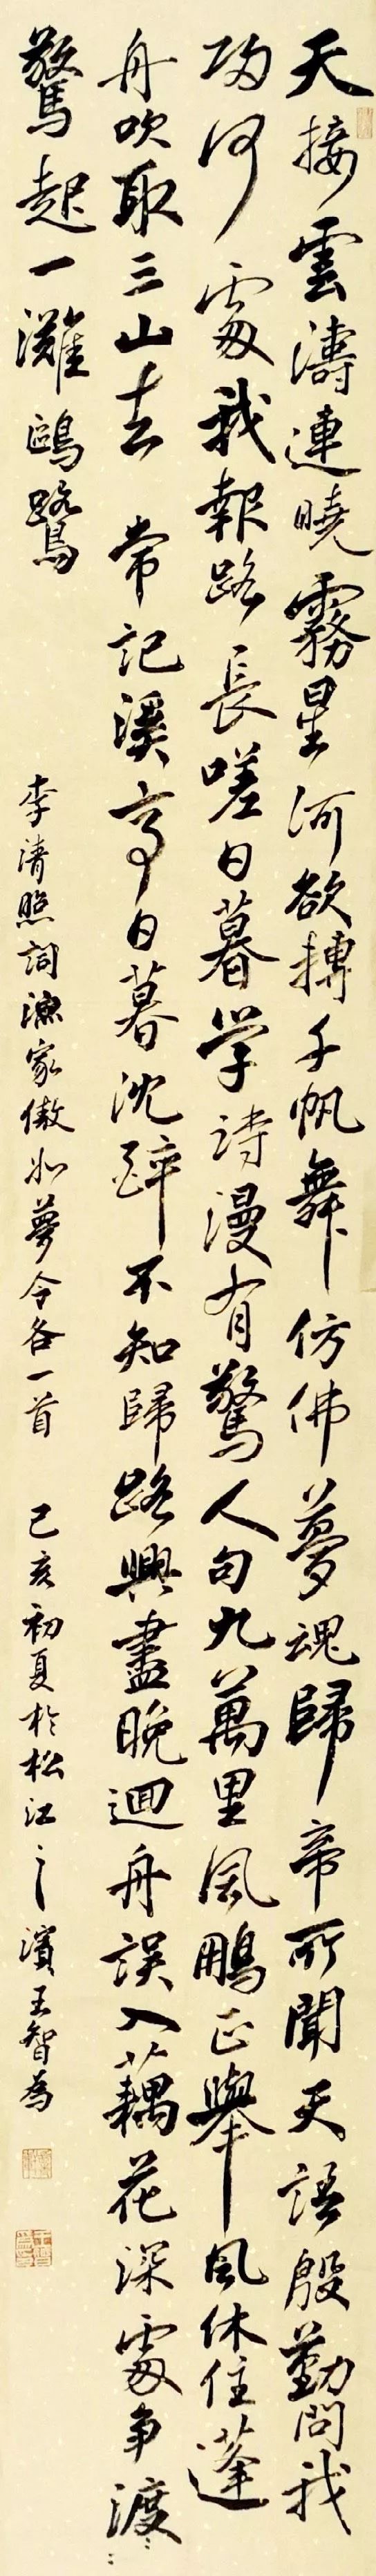 天接雲濤連曉霧星河欲轉千帆舞仿佛夢魂歸帝所聞天語殷勤問我
歸何處我報路長嗟日暮学詩漫有驚人句九萬里風鵬正舉風休住蓬
舟吹取三山去 常記溪亭日暮沈醉不知歸路興盡晚迴舟誤入藕花深處争渡::
驚起一灘鷗鷺
李清照詞漁家傲如夢令各一首 己亥初夏於松江之濱王智為